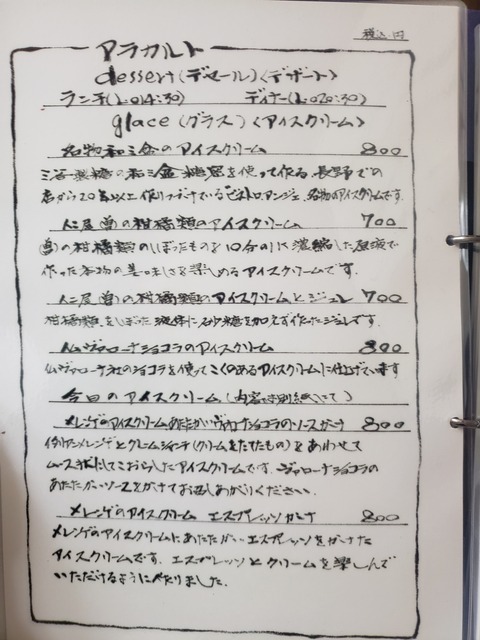 税込 円
アラカルト
dessert(デセール)〈デザート〉
ランチ(L.O14:30) ディナー(L.O20:30)
glace(グラス)〈アイスクリーム〉
名物和三盆のアイスクリーム 800
三谷製糖の和三盆糖を使って作る、長野での
店から20年以上作りつづけているビストロアンジュ、名物のアイスクリームです。
の柑橘類のアイスクリーム 700
の柑橘類のしぼったものを10分の1に濃縮した原液で
作った本物の美味しさを楽しめるアイスクリームです。
の柑橘類のアイスクリームとジュレ 700
柑橘類をしぼった液体に砂糖を加えず作ったジュレです。
仏ヴァローナショコラのアイスクリーム 800
仏ヴァローナ社のショコラを使ってこくのあるアイスクリームに仕上げています
今日のアイスクリーム(内容は別紙にて)
メレンゲのアイスクリームあたたかいヴァローナショコラのソースがけ 800
メレンゲとクレームシャンティ(クリームをたてたもの)をあわせて
ムース状にしてこおらしたアイスクリームです。ヴァローナショコラの
あたたかいソースをかけてお召しあがりください。
メレンゲのアイスクリーム エスプレッソがけ 800
メレンゲのアイスクリームにあたたかいエスプレッソをかけた
アイスクリームです。エスプレッソとクリームを楽しんで
いただけるように作りました。